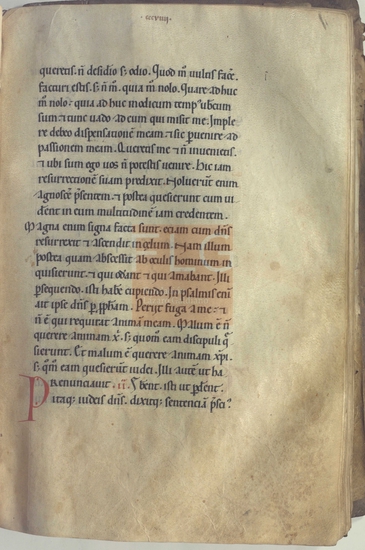 queretis. n̄ desidio s; odio. Quod m̄ uultis facē.
facturi estis. s; n̄ m̄. quia m̄ nolo. Quare adhuc
m̄ nolo; quia adhuc modicum temp' uobcum
sum ⁊ tunc uado ad eum qui misit me. Imple
re debeo dispensationē meam ⁊ sic puenire ad
passionem meam. Queretis me ⁊ n̄ inuenietis.
⁊ ubi sum ego uos n̄ potestis uenire. Hic iam
resurrectionē suam predixit. Noluerunt enim
agnoscē p̄sentem. ⁊ postea quesierunt cum ui
derent in eum multitudinē iam credentem.
Magna enim signa facta sunt. etiam cum dn̄s
resurrexit ⁊ ascendit in celum. Nam illum
postea quam abscessit ab oculis hominum in
quisierunt. ⁊ qui oderant ⁊ qui amabant. Illi
psequendo. isti habē cupiendo. In psalmis enī
ait ipse dn̄s p pph̄am. Periit fuga a me. ⁊
n̄ ē qui requirat animā meam. Malum ē n̄
querere animam x̄. s; quom̄ eam discipuli q̄
sierunt. Et malum ē querere animam xp̄i.
s; qm̄ eam quesierunt iudei. Illi autē ut ha
renunciauit ut pderent.
itaq; iudeis dn̄s. dixitq; sentenciā